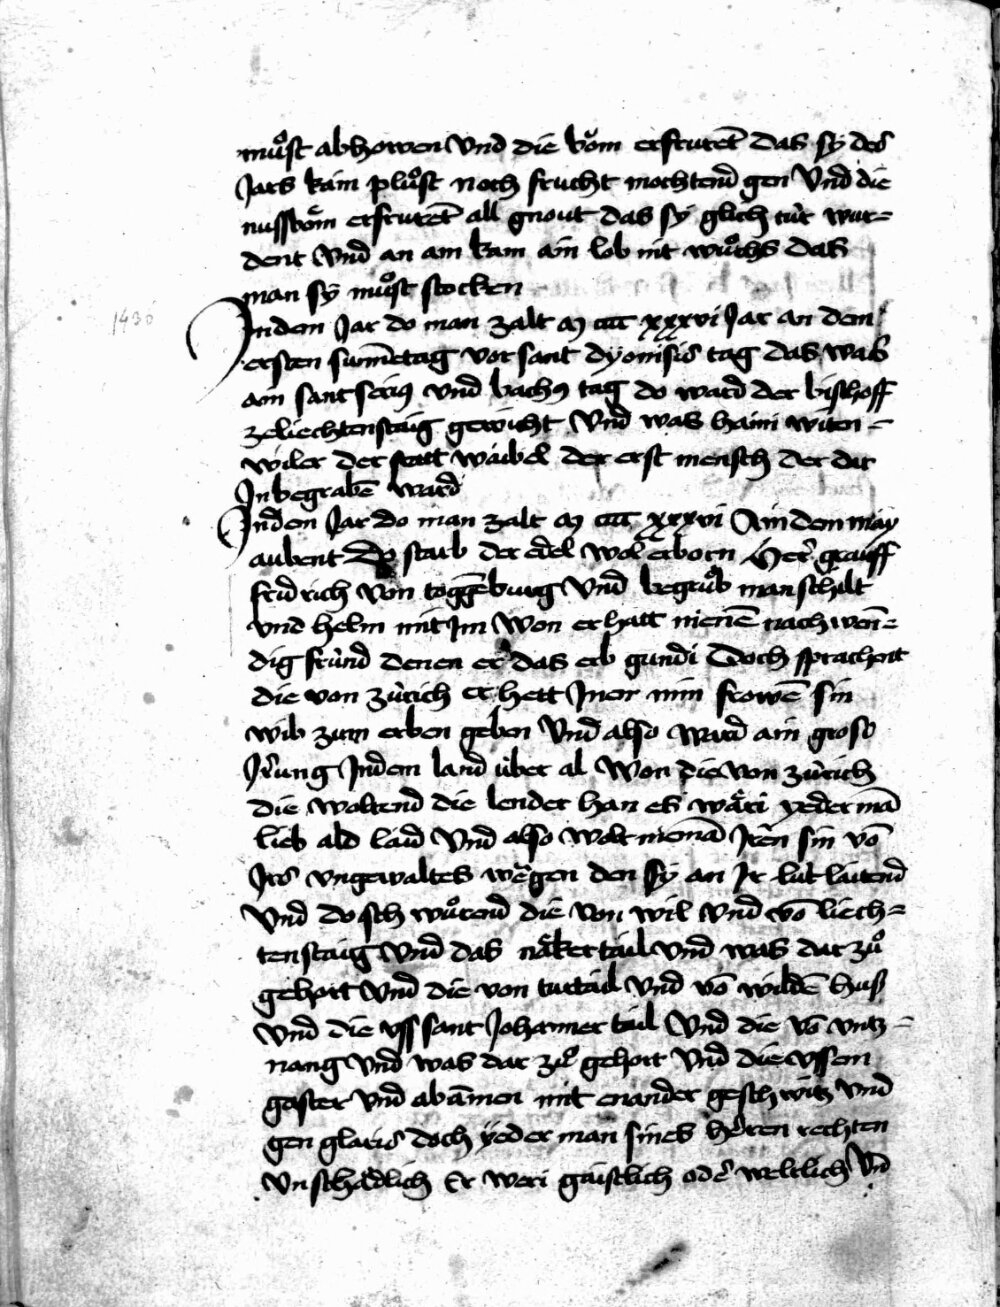 muͦst abhowen Vnd die boͮm erfrurēt das sy des
Jars kain pluͦst noch frucht mochtend gen Vnd die
nussboͤm erfrurēt all gnout das sy glich tùr wur=
dent Vnd an am kam ain lob nit wuͦchs das
man sy muͦst stocken
1436
Jndem Jar do man zalt m cccc xxxvi Jar an dem
ersten sunnētag vor sant dyonisiꝰ tag das was
am sant seriꝰ vnd bachꝰ tag do ward der bischoff
zeliechtenstaig gewicht Vnd was haini witen=
wiler der statt waibel der erst mensch der dar
Jn begrabē ward
Jnden Jar do man zalt m cccc xxxvi Ain dem may
aubent Do starb der edel wol erborn Her graff
fridrich von toggēburg Vnd begruͦb man schilt
vnd helm mit Jm Won er hatt nienē nach wen=
dig frùnd denen er das erb gundi Doch sprachent
die von zùrich er hett Jner min frowē sin
wib zum erben geben Vnd also ward ain gross
Jrrung Jndem land ùber al Won die von zùrich
die woltend die lender han es waͤri yederman̄
lieb ald laid Vnd also wolt niemā Jren sin vō
Jrs vngewaltes wegen den sy an Jr lùt laitend
Vnd do schwuͦrend die von wil vnd vō liech=
tenstaig Vnd das naͤkertail Vnd was dar zuͦ
gehort Vnd die von turtail Vnd vō wildē hus
Vnd die vss sant Johanner tail Vnd die vō vntz=
nang Vnd was dar zuͦ gehort Vnd die vssem
gaster Vnd abāmen mit enander geschwitz Vnd
gen glaris doch yederman sines heren rechten
Vnschaͤdlich Er weri gaistlich oder weltlich Vnd